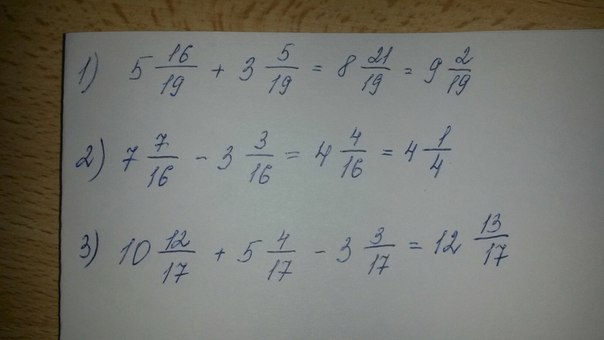 1) 5 16/19 + 3 5/19 = 8 21/19 = 9 2/19
2) 7 7/16 - 3 3/16 = 4 4/16 = 4 1/4
3) 10 12/17 + 5 4/17 - 3 3/17 = 12 13/17